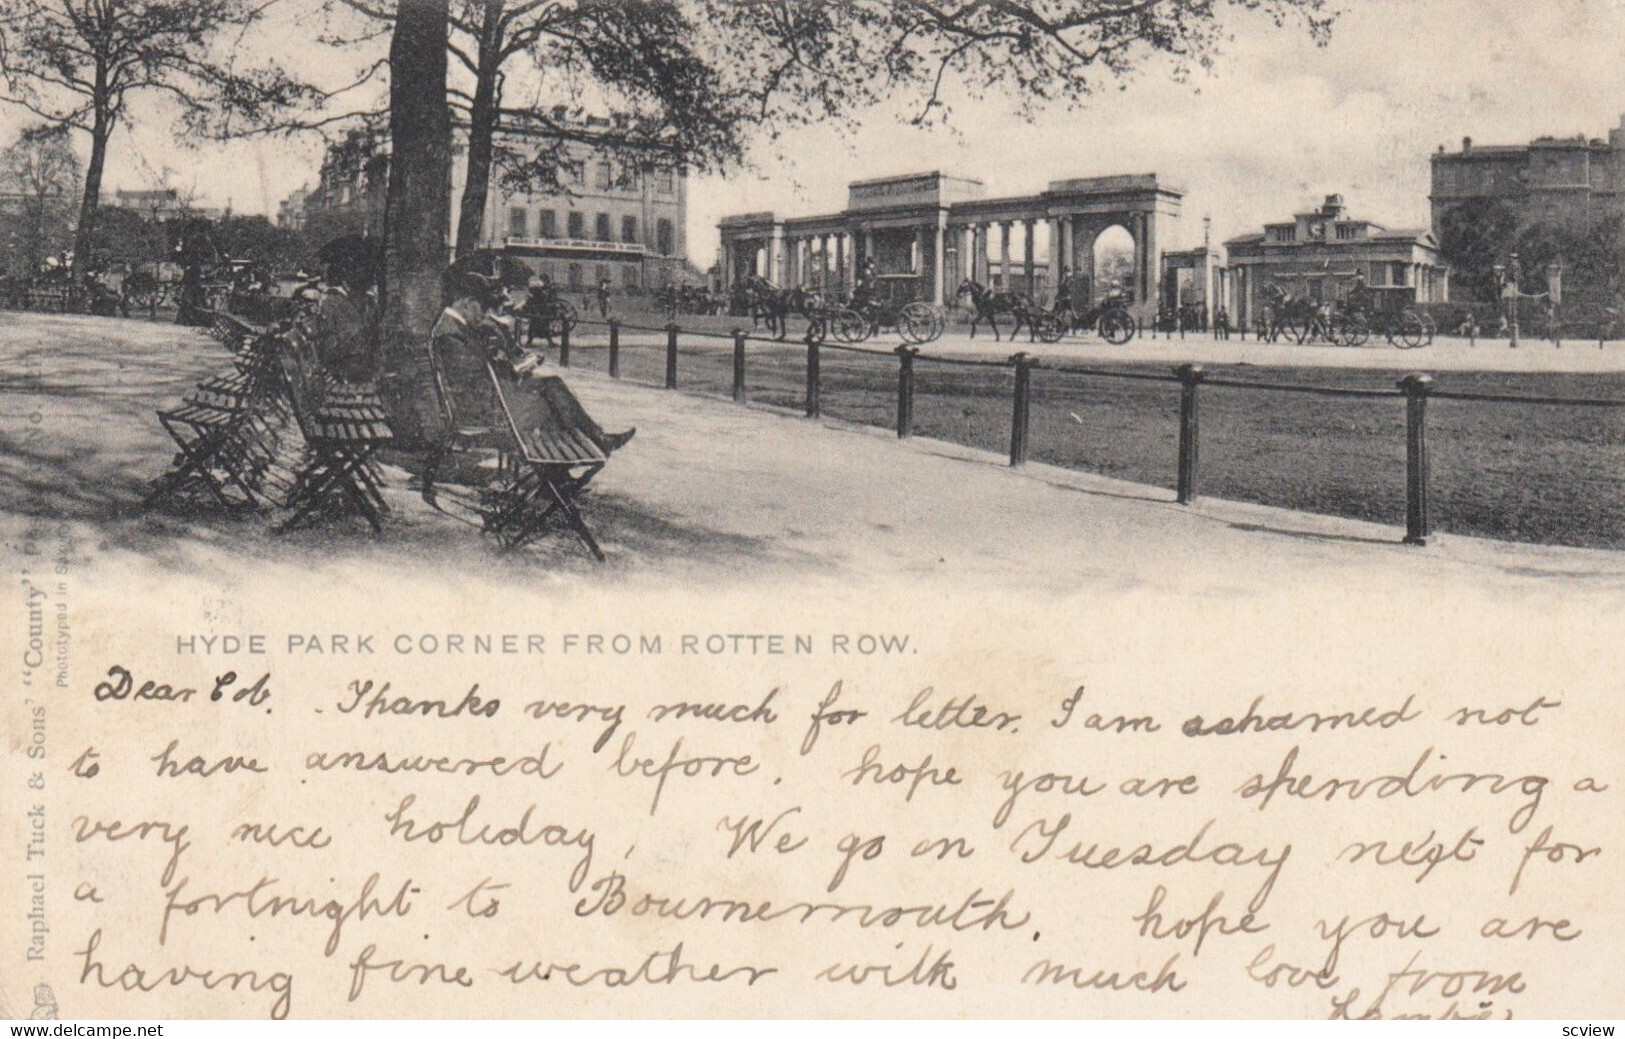 HYDE PARK CORNER FROM ROTTEN ROW.
Dear Cob. Thanks very much for letter. I am ashamed not
to have answered before. hope you are spending a
very nice holiday, We go on Tuesday next for
a fortnight to Bournemouth. hope you are
having fine weather with much love from
Raphael Tuck & Sons' "County"
Phototyped in
www.delcampe.net
scview